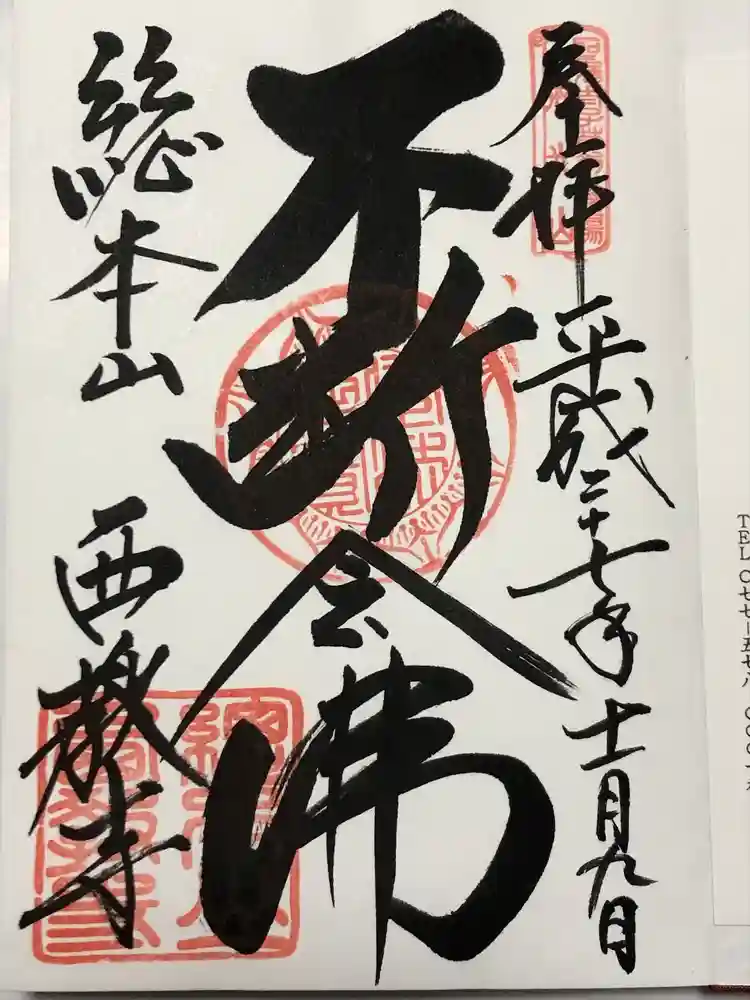 奉拝 平成二十七年十一月九日
不断念佛
総本山 西教寺
TEL〇七七-五七八